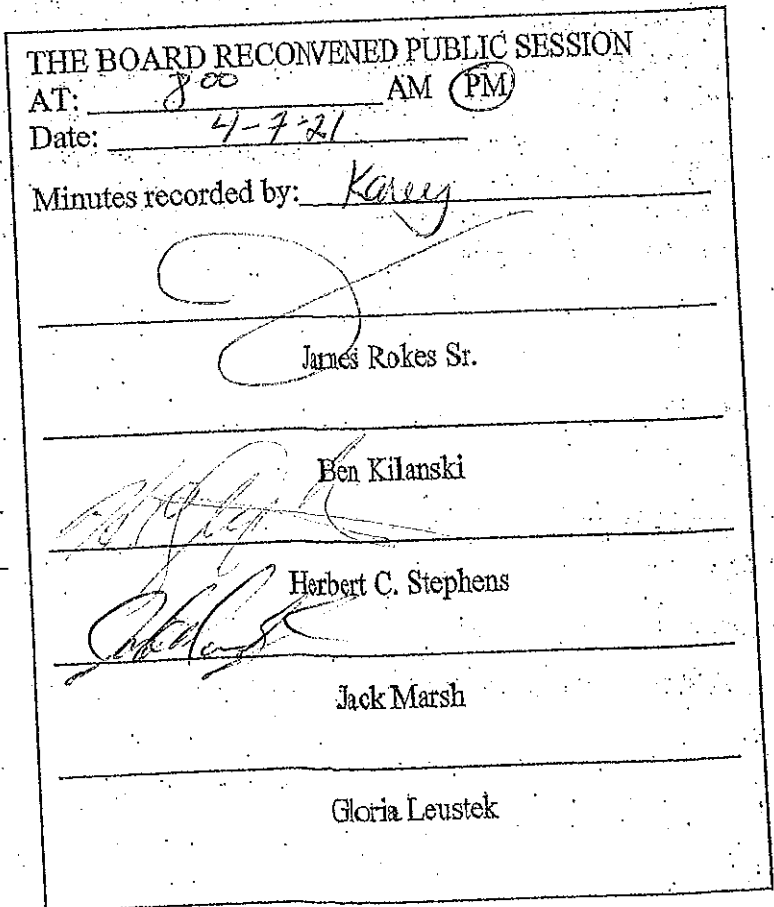 THE BOARD RECONVENED PUBLIC SESSION
AT: 8:00 AM PM
Date: 4-7-21
Minutes recorded by: Karey
James Rokes Sr.
Ben Kilanski
Herbert C. Stephens
Jack Marsh
Gloria Leustek